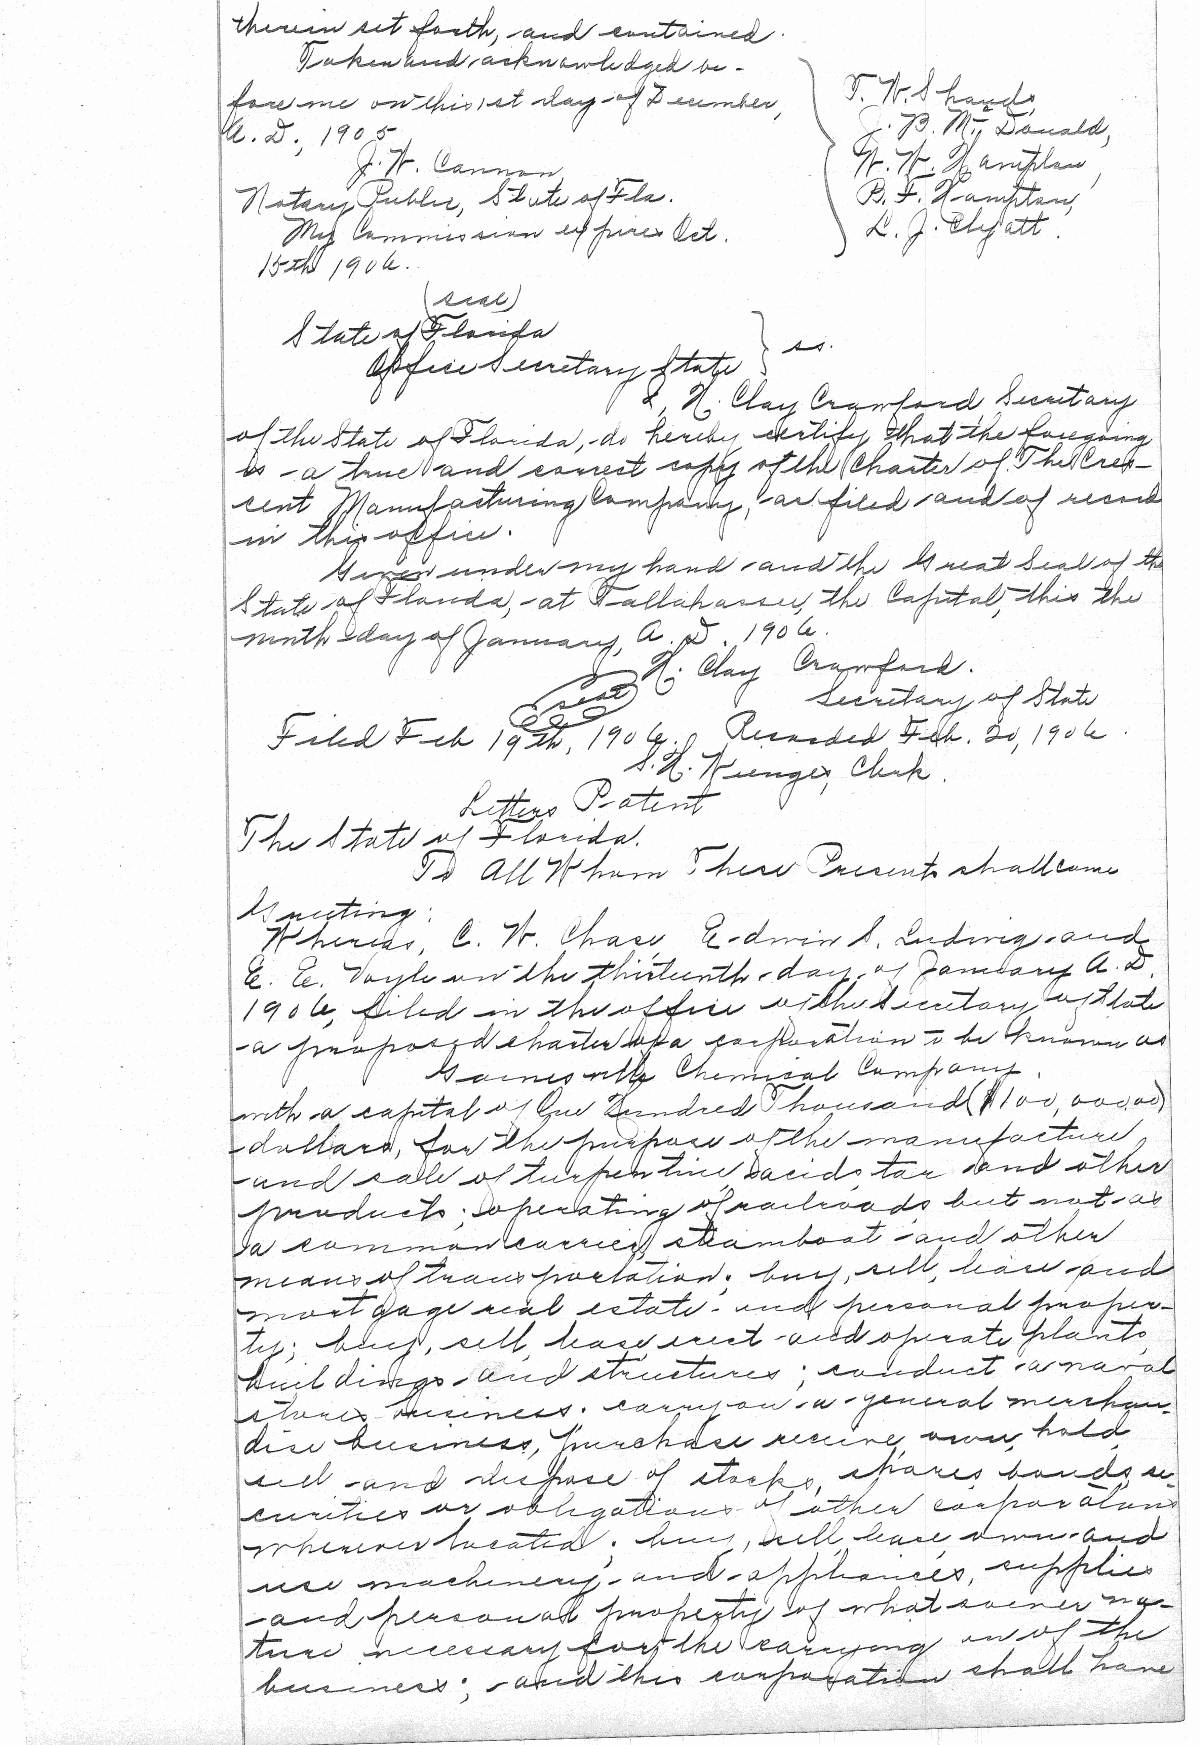 therein set forth, and contained.
Taken and acknowledged be-
fore me on this 1st day of December,
A. D., 1905
J. W. Cannon
Notary Public, State of Fla.
My Commission expires Oct.
15th 1906.
(seal)
T. W. Shands,
J. B. McDonald,
W. W. Hampton,
B. F. Hampton,
L. J. Clyatt.
State of Florida
Office Secretary State } ss.
I, H. Clay Crawford, Secretary
of the State of Florida, do hereby certify that the foregoing
is a true and correct copy of the Charter of The Cres-
cent Manufacturing Company, as filed and of record
in this office.
Given under my hand and the Great Seal of the
State of Florida, at Tallahassee, the Capital, this the
ninth day of January, A. D. 1906.
H. Clay Crawford.
seal Secretary of State
Filed Feb 19th, 1906. Recorded Feb. 20, 1906.
S. H. Wienges, Clerk.
Letters Patent
The State of Florida.
To All Whom These Presents shall come
Greeting:
Whereas, C. W. Chase, Edwin S. Ludwig and
E. E. Voyle on the thirteenth day of January A. D.
1906, filed in the office of the Secretary of State
a proposed charter of a corporation to be known as
Gainesville Chemical Company.
with a capital of One Hundred Thousand ($100,000.00)
dollars, for the purpose of the manufacture
and sale of turpentine, acids, tar and other
products; operating of railroads but not as
a common carrier, steamboat and other
means of transportation; buy, sell, lease and
mortgage real estate and personal proper-
ty; buy, sell, lease, erect and operate plants,
buildings and structures; conduct a naval
stores business; carry on a general merchan-
dise business, purchase receive, own, hold,
sell and dispose of stocks, shares, bonds, se-
curities or obligations of other corporations
wherever located; buy, sell, lease, own and
use machinery and appliances, supplies
and personal property of whatsoever na-
ture necessary for the carrying on of the
business; and this corporation shall have